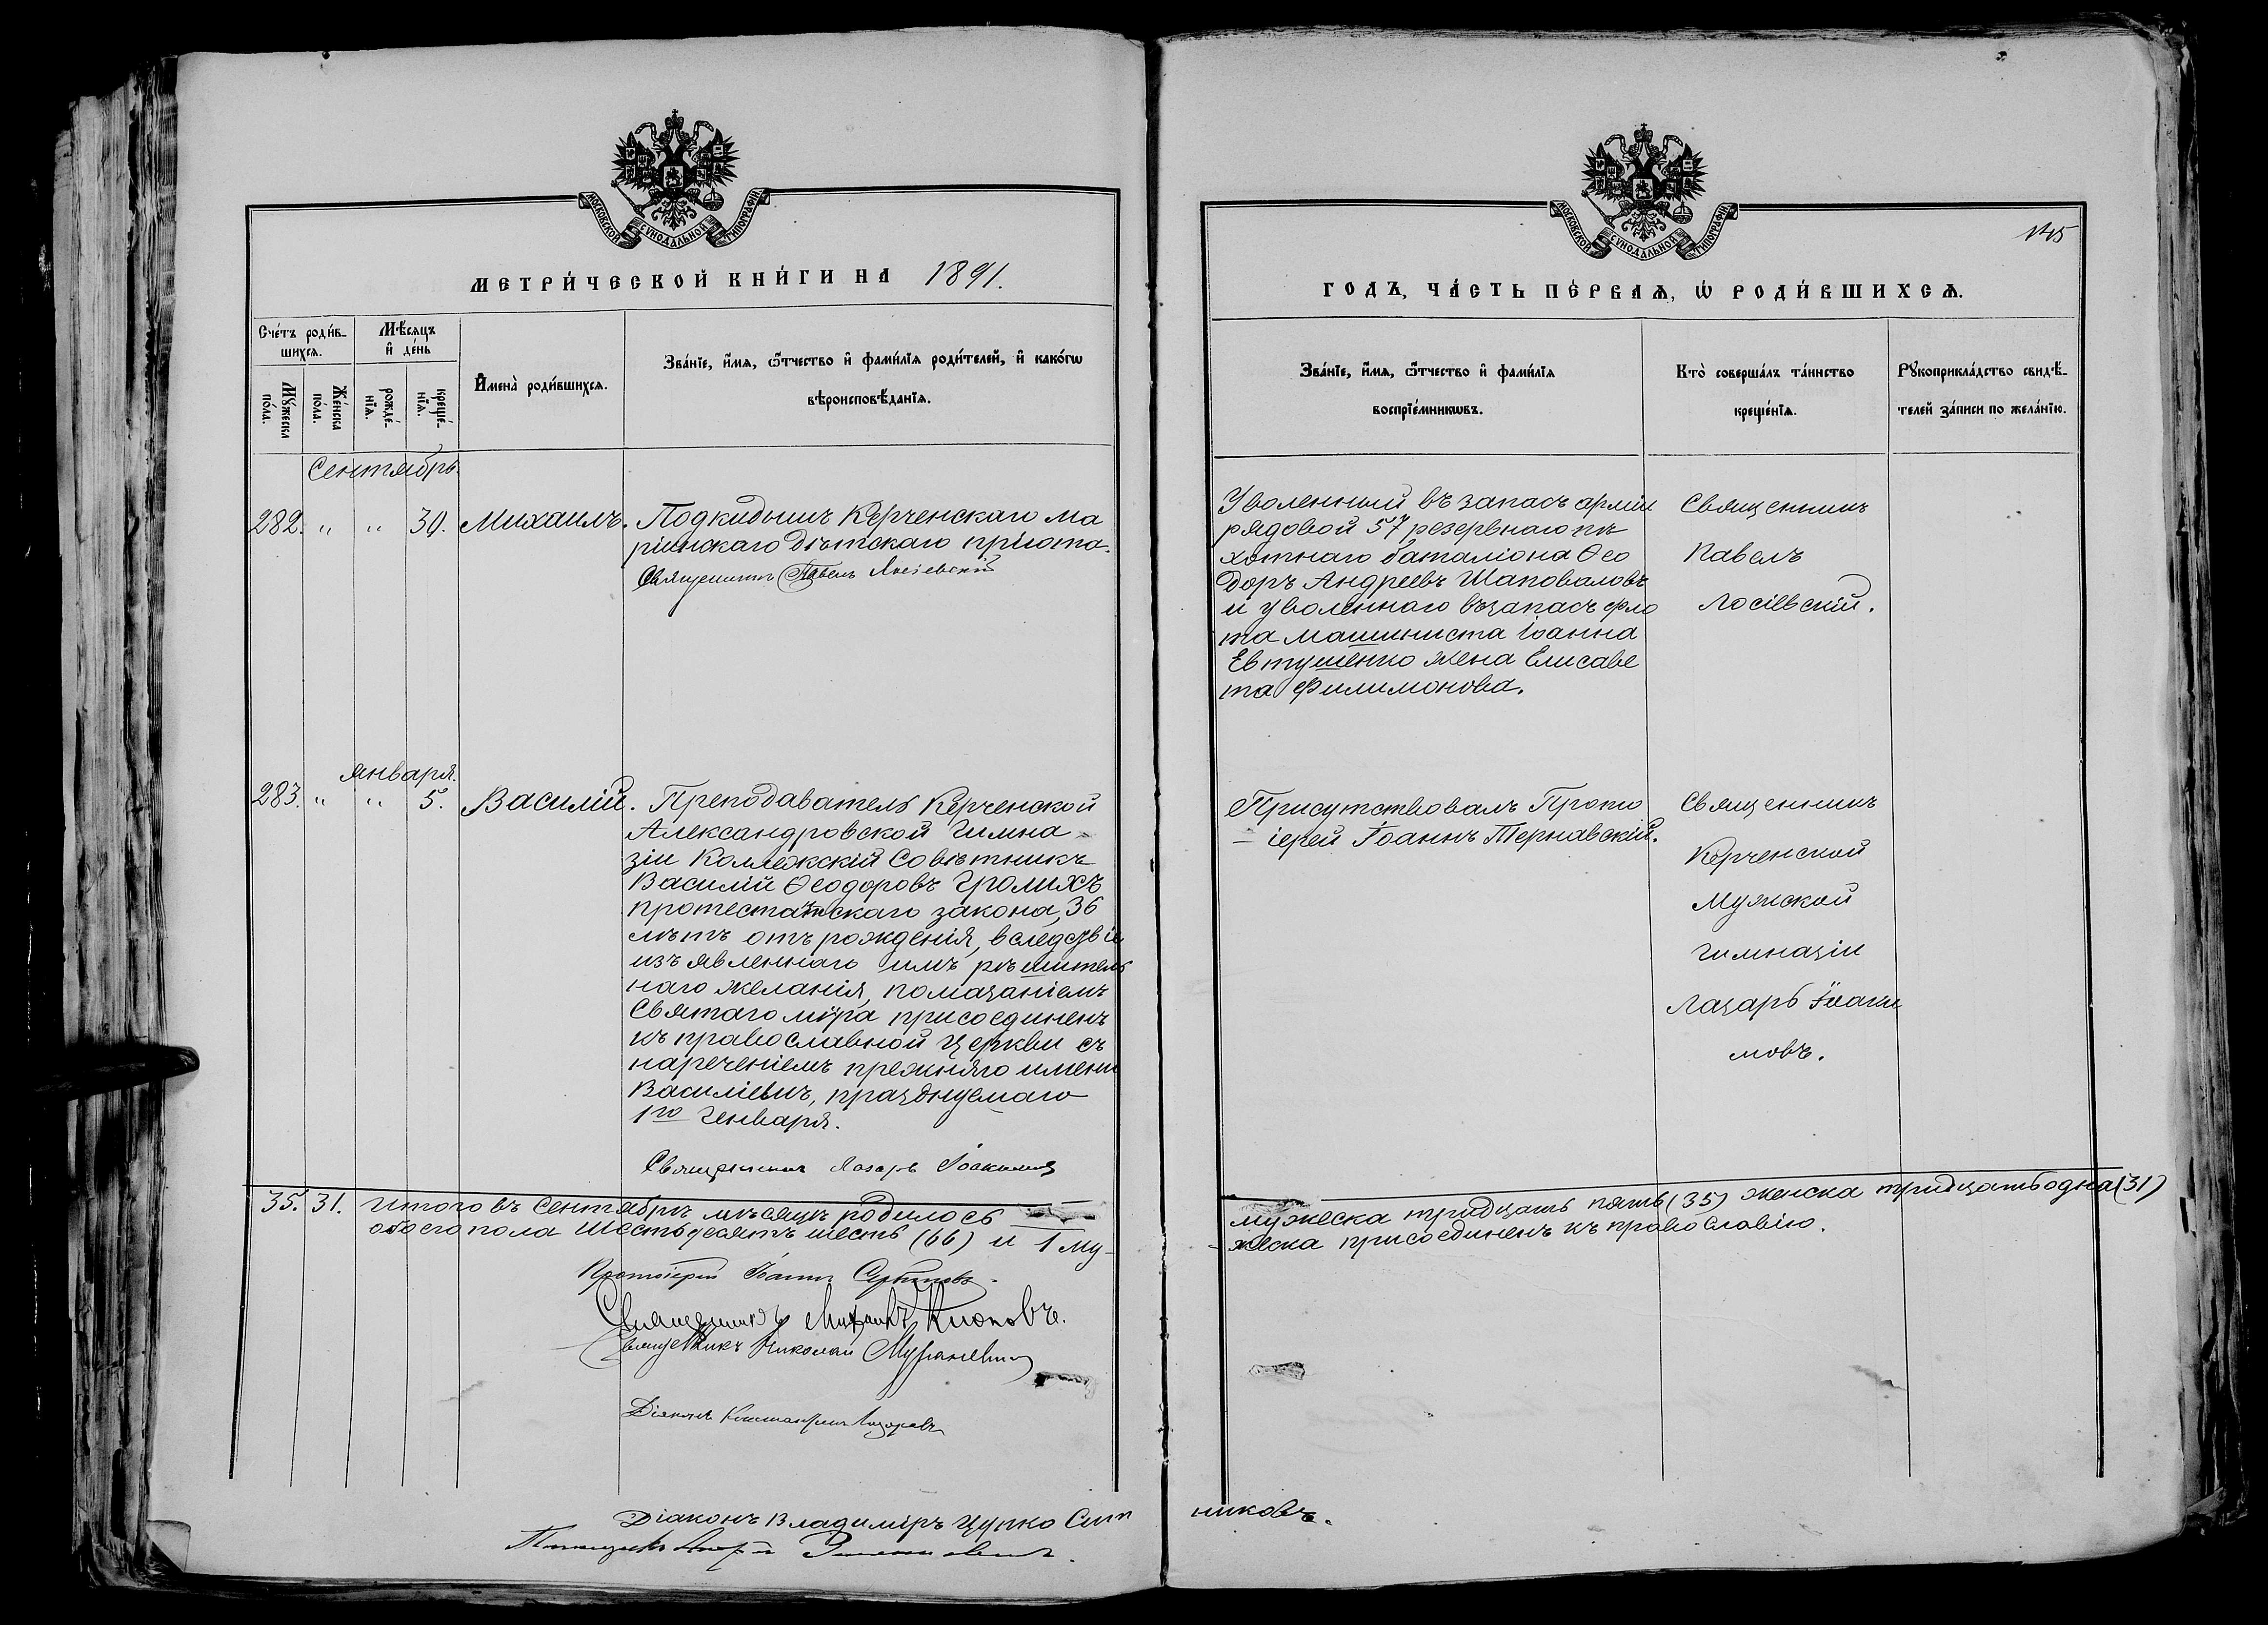 МОСКОВСКОЙ СѴНОДАЛЬНОЙ ТИПОГРАФІИ
МЕТРИ́ЧЕСКОЙ КНИ́ГИ НА 1891.
Сче́тъ роди́в-
шихсѧ.
Мѣ́сѧцъ
и҆ де́нь
Мꙋ́жеска
по́ла.
Же́нска
по́ла.
рожде́-
нїѧ.
креще́-
нїѧ.
И҆мена̀ роди́вшихсѧ.
Зва́нїе, и҆́мѧ, ѻ҆́тчество и҆ фами́лїѧ роди́телей, и҆ како́гѡ
вѣроисповѣ́данїѧ.
Сентябрь
282. " " 30. Михаилъ. Подкидышъ Керченскаго Ма
ріинскаго дѣтскаго пріюта.
Священникъ Павелъ Лосіевскій
января.
283. " " 5. Василій. Преподаватель Керченской
Александровской Гимна-
зіи Коллежскій Совѣтникъ
Василій Ѳеодоровъ Гролихъ
протестантскаго закона, 36
лѣтъ отъ рожденія, вследствіе
изъявленнаго имъ рѣшитель
наго желанія, помазаніемъ
Святаго мѵра присоединенъ
къ православной Церкви съ
нареченіемъ прежняго имени
Василіемъ, празднуемаго
1го Генваря.
Священникъ Лазарь Іоакимовъ
35. 31. Итого въ Сентябрѣ мѣсяцѣ родилось
обоего пола шестьдесятъ шесть (66) и 1 му-
Протоіерей Іоаннъ Сербиновъ
Священникъ Михаилъ Клоповъ.
Священникъ Николай Мураневич
Діаконъ Константинъ Лазаревъ
Діаконъ Владиміръ Цупко Сит
МОСКОВСКОЙ СѴНОДАЛЬНОЙ ТИПОГРАФІИ
145
ГОДЪ, ЧА́СТЬ ПЕ́РВАѦ, Ѡ҆ РОДИ́ВШИХСѦ.
Зва́нїе, и҆́мѧ, ѻ҆́тчество и҆ фами́лїѧ
воспрїе́мникѡвъ.
Кто̀ соверша́лъ та́инство
креще́нїѧ.
Рꙋкоприкла́дство свидѣ́-
телей за́писи по жела́нїю.
Уволенный въ запасъ арміи
рядовой 57 резервнаго пѣ
хотнаго баталіона Ѳео
доръ Андреевъ Шаповаловъ
и уволеннаго въ запасъ фло
та машиниста Іоанна
Евтушенко жена Елисаве
та Филимонова.
Священникъ
Павелъ
Лосіевскій.
Присутствовалъ Прото
-іерей Іоаннъ Тернавскій.
Священникъ
Керченской
Мужской
Гимназіи
Лазарь Іоаки
мовъ.
мужеска тридцать пять (35) женска тридцать одна (31)
-жеска присоединенъ къ православію.
никовъ.